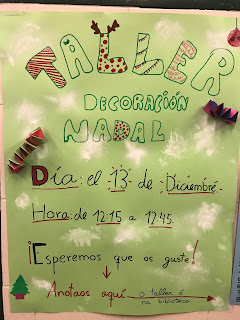 TALLER
DECORACIÓN
NADAL
Día: el 13 de Diciembre.
Hora: de 12:15 a 12:45
¡Esperemos que os guste!
Anotaos aquí
o taller é
na biblioteca